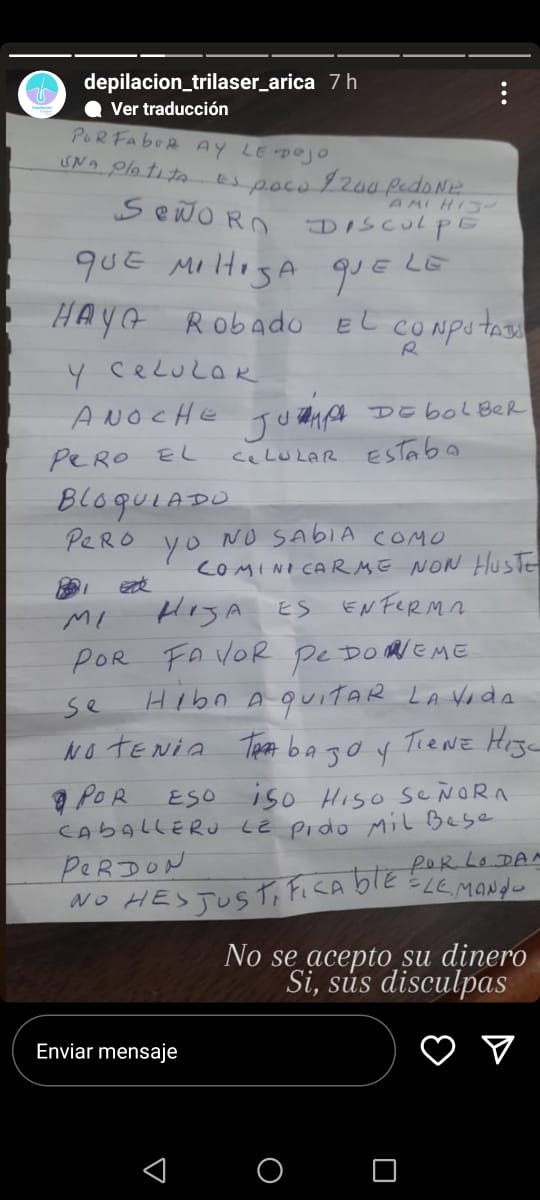 depilacion_trilaser_arica 7 h
Ver traducción
PORFABOR AY LE DEJO
UNA PlAtitA ES POCO $200 PedONE
A MI HIJO
SEÑORA DISCULPE
QUE MI HIJA QUE LE
HAYA ROBADO EL CONPUTADO
R
Y CELULAR
ANOCHE DEBOLBER
PERO EL CELULAR ESTABA
BLOQUIADO
PERO YO NO SABIA COMO
COMINICARME NON HUSTE
MI HIJA ES ENFERMA
POR FAVOR PEDONEME
SE HIBA A QUITAR LA VIDA
NO TENIA TRABAJO Y TIENE HIJO
POR ESO ISO HISO SEÑORA
CABALLERO LE PIDO MIL BESE
PERDON POR LO DAN
NO HES JUSTIFICABLE = LE MANDO
No se acepto su dinero
Si, sus disculpas
Enviar mensaje